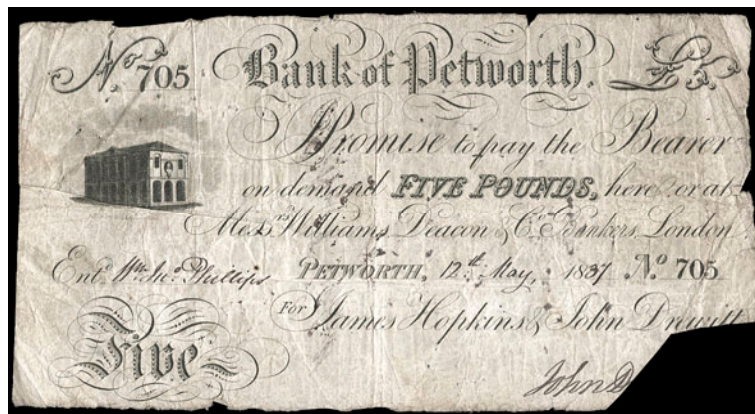 No. 705 Bank of Petworth. £5.
I Promise to pay the Bearer
on demand FIVE POUNDS, here or at
Messrs. Williams Deacon & Co. Bankers London
Entd. Wm. Jno. Phillips PETWORTH, 12th May, 1837 No 705
For James Hopkins & John Drewitt
Five
John D